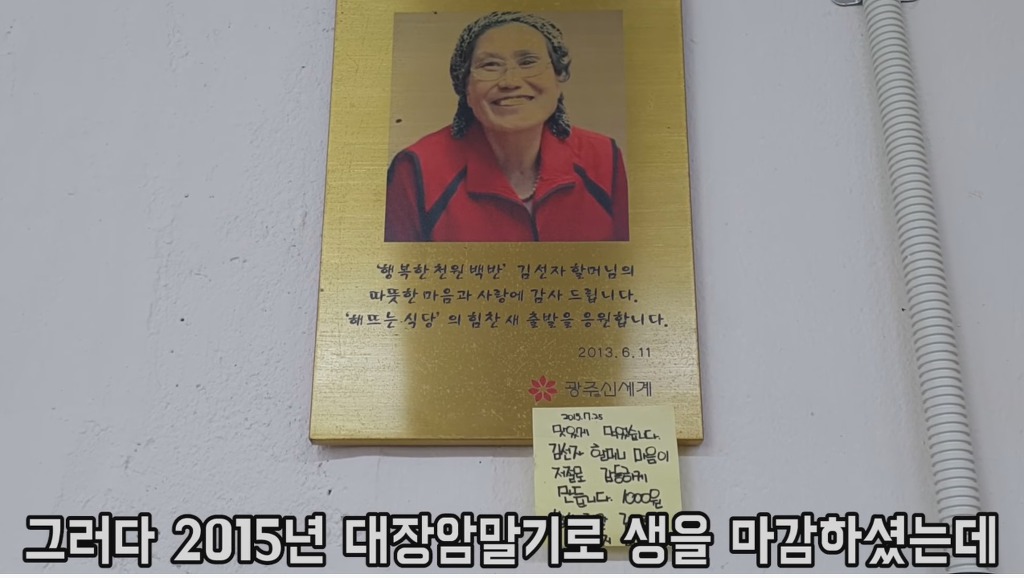 '행복한 천원 백반' 김선자 할머님의
따뜻한 마음과 사랑에 감사 드립니다.
'해뜨는 식당' 의 힘찬 새 출발을 응원합니다.
2013. 6. 11
광주신세계
맛있게 먹었습니다.
김선자 할머니 마음이
저절로 감동하게
만듭니다. 1000원
그러다 2015년 대장암말기로 생을 마감하셨는데